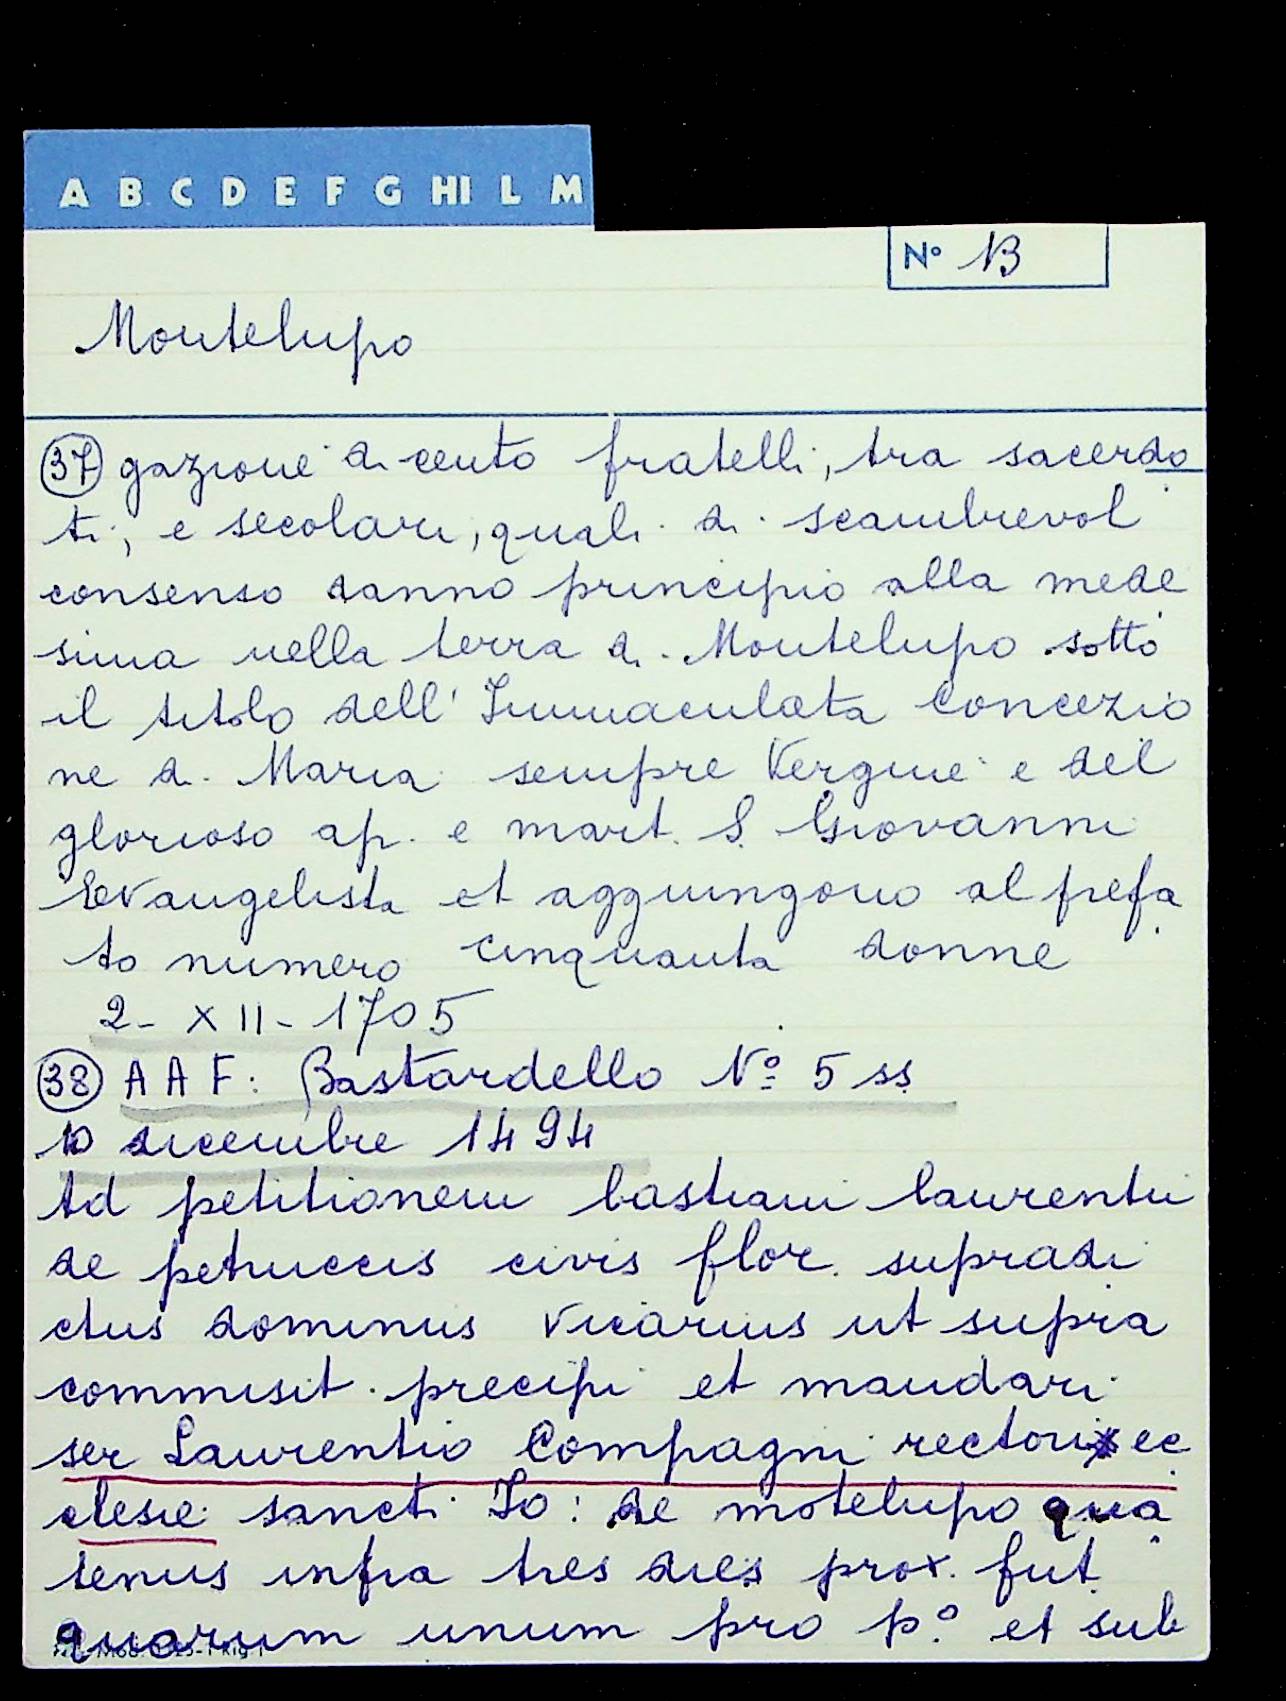 A B C D E F G HI L M
N° 13
Montelupo
37 gazione di cento fratelli, tra sacerdo
ti, e secolari, quali di scambievol
consenso danno principio alla mede
sima nella terra di Montelupo sotto
il titolo dell' Immaculata Concezio
ne di Maria sempre Vergine e del
glorioso ap. e mart. S. Giovanni
Evangelista et aggiungono al prefa
to numero cinquanta donne
2 - XII - 1705
38 A A F: Bastardello N° 5 ss
10 dicembre 1494
Ad petitionem bastiani laurentii
de petruccis civis flor. supradi
ctus dominus Vicarius ut supra
commisit precipi et mandari
ser Laurentio Compagni rectori ec
clesie sancti Io: de motelupo qua
tenus infra tres dies prox. fut.
quorum unum pro p.° et sub